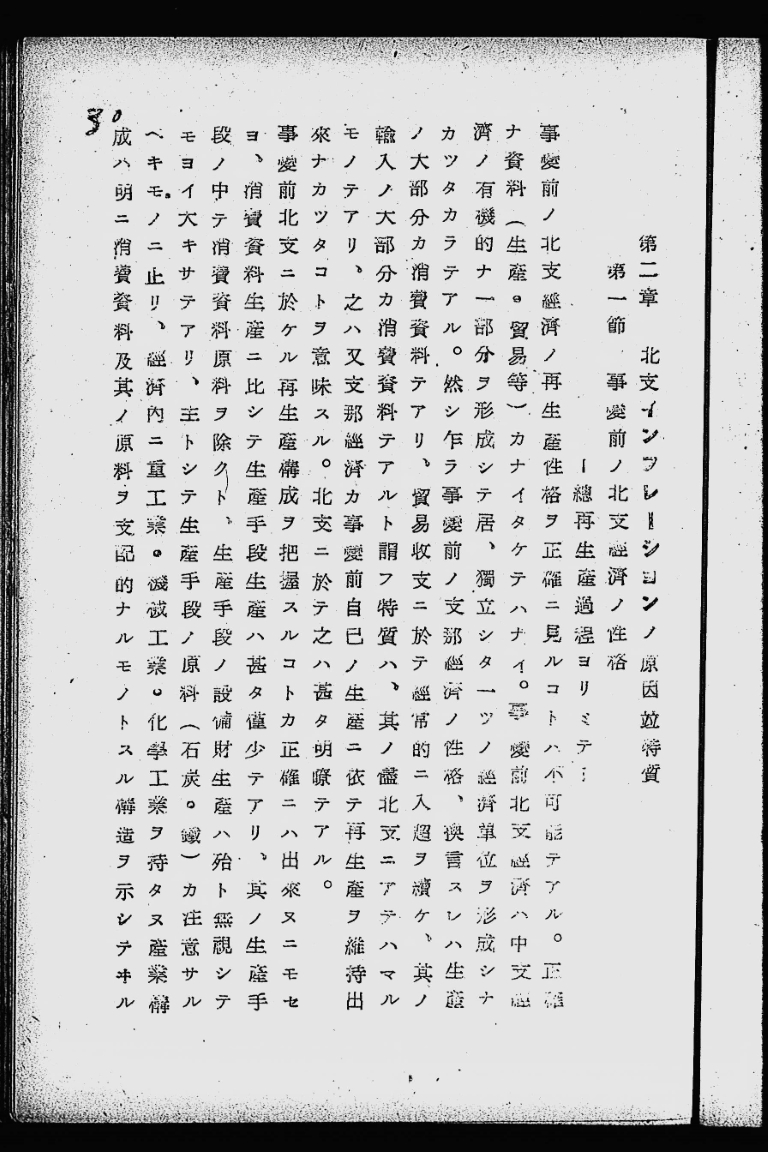 第二章 北支インフレーションノ原因竝特質
第一節 事變前ノ北支經濟ノ性格
ー總再生產過程ヨリミテー
事變前ノ北支經濟ノ再生產性格ヲ正確ニ見ルコトハ不可能テアル。正確
ナ資料（生產。貿易等）カナイタケテハナイ。事變前北支經濟ハ中支經
濟ノ有機的ナ一部分ヲ形成シテ居、獨立シタ一ツノ經濟單位ヲ形成シナ
カツタカラテアル。然シ乍ラ事變前ノ支那經濟ノ性格、換言スレハ生產
ノ大部分カ消費資料テアリ、貿易收支ニ於テ經常的ニ入超ヲ續ケ、其ノ
輸入ノ大部分カ消費資料テアルト謂フ特質ハ、其ノ儘北支ニアテハマル
モノテアリ、之ハ又支那經濟カ事變前自己ノ生產ニ依テ再生產ヲ維持出
來ナカツタコトヲ意味スル。北支ニ於テ之ハ甚タ明瞭テアル。
事變前北支ニ於ケル再生產構成ヲ把握スルコトカ正確ニハ出來ヌニモセ
ヨ、消費資料生產ニ比シテ生產手段生產ハ甚タ僅少テアリ、其ノ生產手
段ノ中テ消費資料原料ヲ除クト、生產手段ノ設備財生產ハ殆ト無視シテ
モヨイ大キサテアリ、主トシテ生產手段ノ原料（石炭。鐵）カ注意サル
ヘキモノニ止リ、經濟內ニ重工業。機械工業。化學工業ヲ持タヌ產業構
成ハ明ニ消費資料及其ノ原料ヲ支配的ナルモノトスル構造ヲ示シテヰル
30